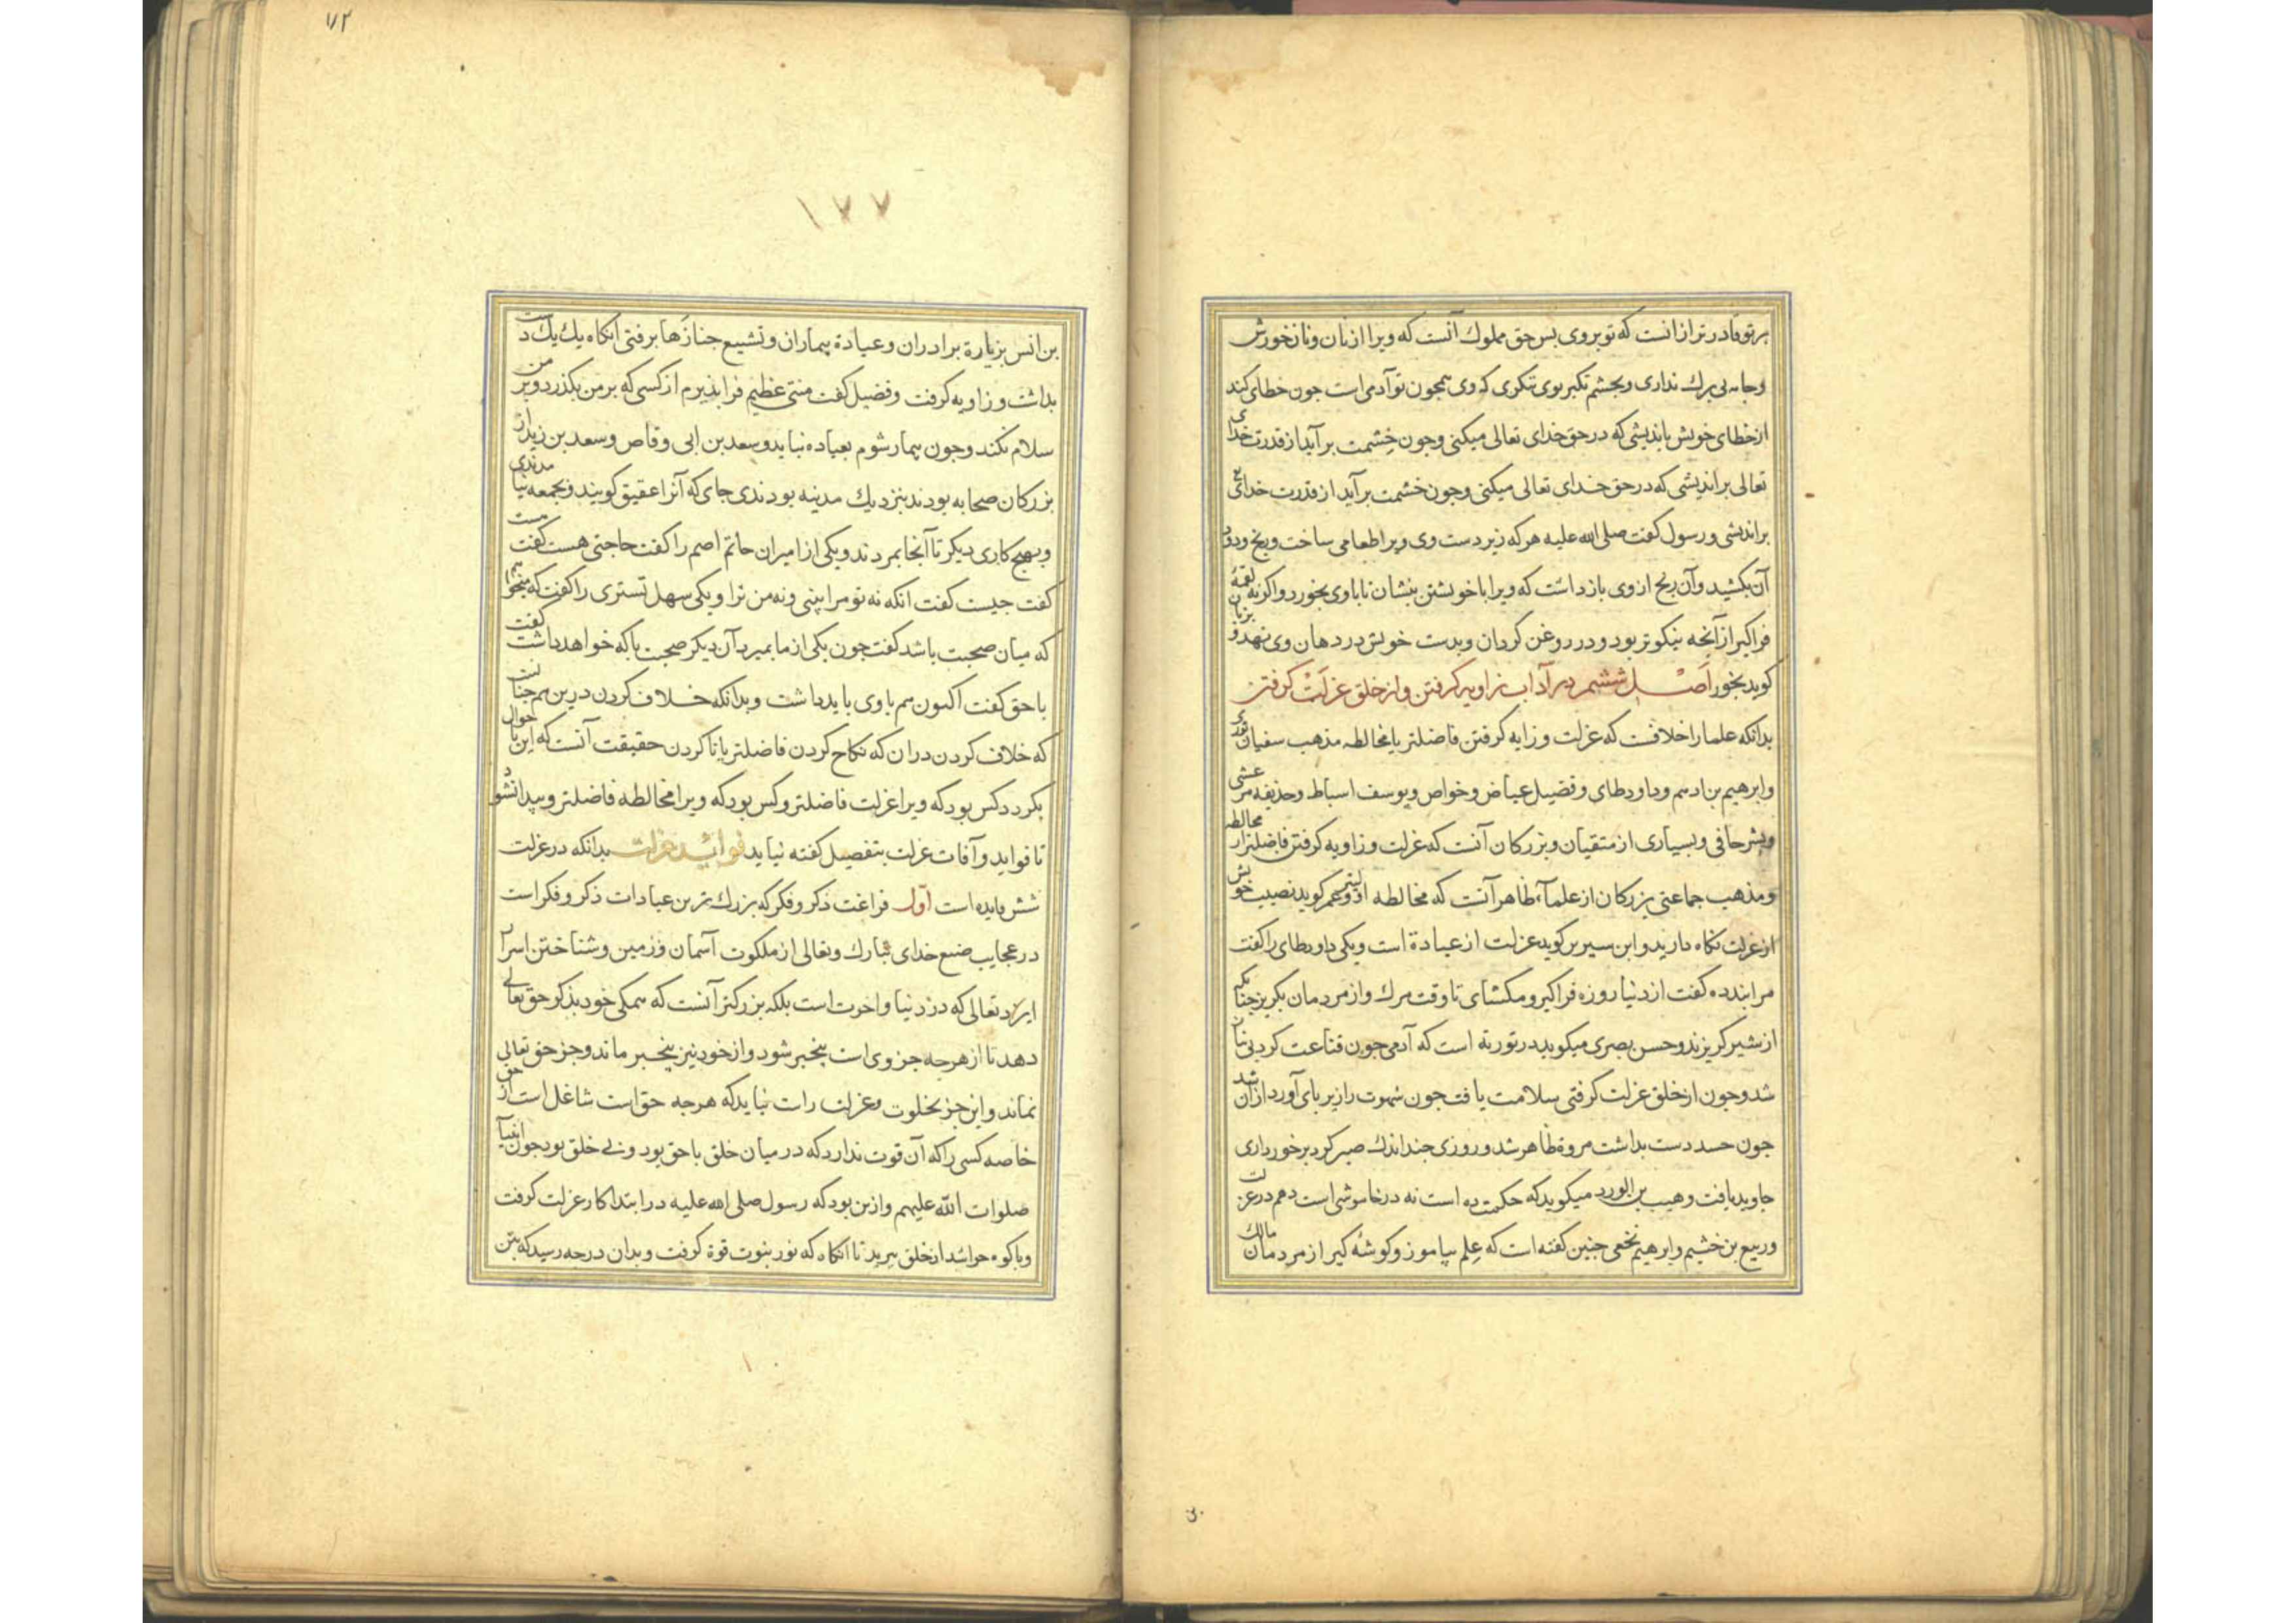 بر تو قادرتر از انست که تو بر وی بس حق مملوک آنست که ویرا از نان و نانخورش
و جامه بی برک نداری و بجشم تکبر بوی ننکری که وی همجون تو آدمی است جون خطای کند
از خطای خویش باندیشی که در حق خدای تعالی میکنی و جون خشمت بر آید از قدرت خدای
تعالی بر اندیشی که در حق خدای تعالی میکنی و جون خشمت بر آید از قدرت خدای تع
بر اندیشی و رسول کفت صلی الله علیه هر که زیر دست وی ویرا طعامی ساخت و رنج و دود
آن بکشید و آن رنج از وی بازداشت که ویرا با خویشتن بنشان تا با وی بخورد و اکر نه لقمهٔ
فراکیر از آنجه نیکوتر بود و در روغن کردان و بدست خویش در دهان وی نهد و بزبان
کوید بخور اصل ششیم در آداب زاویه کرفتن و از خلق عزلت کرفتن
بدانکه علما را خلافست که عزلت و زایه کرفتن فاضلتر یا مخالطه مذهب سفیان ثوری
و ابرهیم بن ادهم و داود طای و فضیل عیاض و خواص و یوسف اسباط و حذیفه مرعشی
و بشر حافی و بسیاری از متقیان و بزرکان آنست که عزلت و زاویه کرفتن فاضلتر از مخالطه
و مذهب جماعتی بزرکان از علماء ظاهر آنست که مخالطه اولیتر و عمر کوید نصیب خویش
از عزلت نکاه دارید و ابن سیرین کوید عزلت از عبادة است و یکی داود طای را کفت
مرا بندده کفت از دنیا روزه فراکیر و مکشای تا وقت مرک و از مردمان بکریز جنانکه
از شیر کریزند و حسن بصری میکوید در توریة است که آدمی جون قناعت کرد بی نیاز
شد و جون از خلق عزلت کرفتی سلامت یافت جون شهوت را زیر بای آورد ازاد شد
جون حسد دست بداشت مروة ظاهر شد و روزی جند اندک صبر کرد برخورداری
جاوید یافت و هیب بن الورد میکوید که حکمت ده است نه در خاموشی است دهم در عزلت
و ربیع بن خشیم و ابرهیم نخعی جنین کفته است که علم بیاموز و کوشه کیر از مردمان مالک
۱۷۷
بن انس بزیارة برادران و عیادة بیماران و تشییع جنازها برفتی انکاه یک یک دست
بداشت و زاویه کرفت و فضیل کفت منتی عظیم فرابذیرم از کسی که بر من بکذرد و بر من
سلام نکند و جون بیمار شوم بعیاده نیاید و سعد بن ابی وقاص و سعد بن زید از
بزرکان صحابه بودند بنزدیک مدینه بودندی جای که آنرا عقیق کویند و بجمعه نیامدندی
و بهیج کاری دیکر تا آنجا بمردند و یکی از امیران حاتم اصم را کفت حاجتی هست کفت هست
کفت جیست کفت انکه نه تو مرا بینی و نه من ترا و یکی سهل تستری را کفت که میخواهم
که میان صحبت باشد کفت جون یکی از ما بمیرد آن دیکر صحبت با که خواهد داشت کفت
با حق کفت اکنون هم با وی باید داشت و بدانکه خلاف کردن درین هم جنانست
که خلاف کردن در ان که نکاح کردن فاضلتر یا نا کردن حقیقت آنست که این باحوال
بکردد کس بود که ویرا عزلت فاضلتر و کس بود که ویرا مخالطه فاضلتر و پیدا نشود
تا فواید و آفات عزلت بتفصیل کفته نیاید فواید عزلت بدانکه در عزلت
شش فایده است اول فراغت ذکر و فکر که بزرکترین عبادات ذکر و فکر است
در عجایب صنع خدای تبارک و تعالی از ملکوت آسمان و زمین و شناختن اسرار
ایزد تعالی که در دنیا و اخرت است بلکه بزرکتر آنست که همکی خود بذکر حق تعالی
دهد تا از هرجه جز وی است بیخبر شود و از خود نیز بیخبر ماند و جز حق تعالی
نماند و این جز بخلوت و عزلت راست نیاید که هرجه حق است شاغل است از حق
خاصه کسی را که آن قوت ندارد که در میان خلق با حق بود و بی خلق بود جون انبیا
صلوات الله علیهم و ازین بود که رسول صلی الله علیه در ابتدا کار عزلت کرفت
و با کوه حرا شد از خلق ببرید تا انکاه که نور نبوت قوة کرفت و بدان درجه رسید که بتن